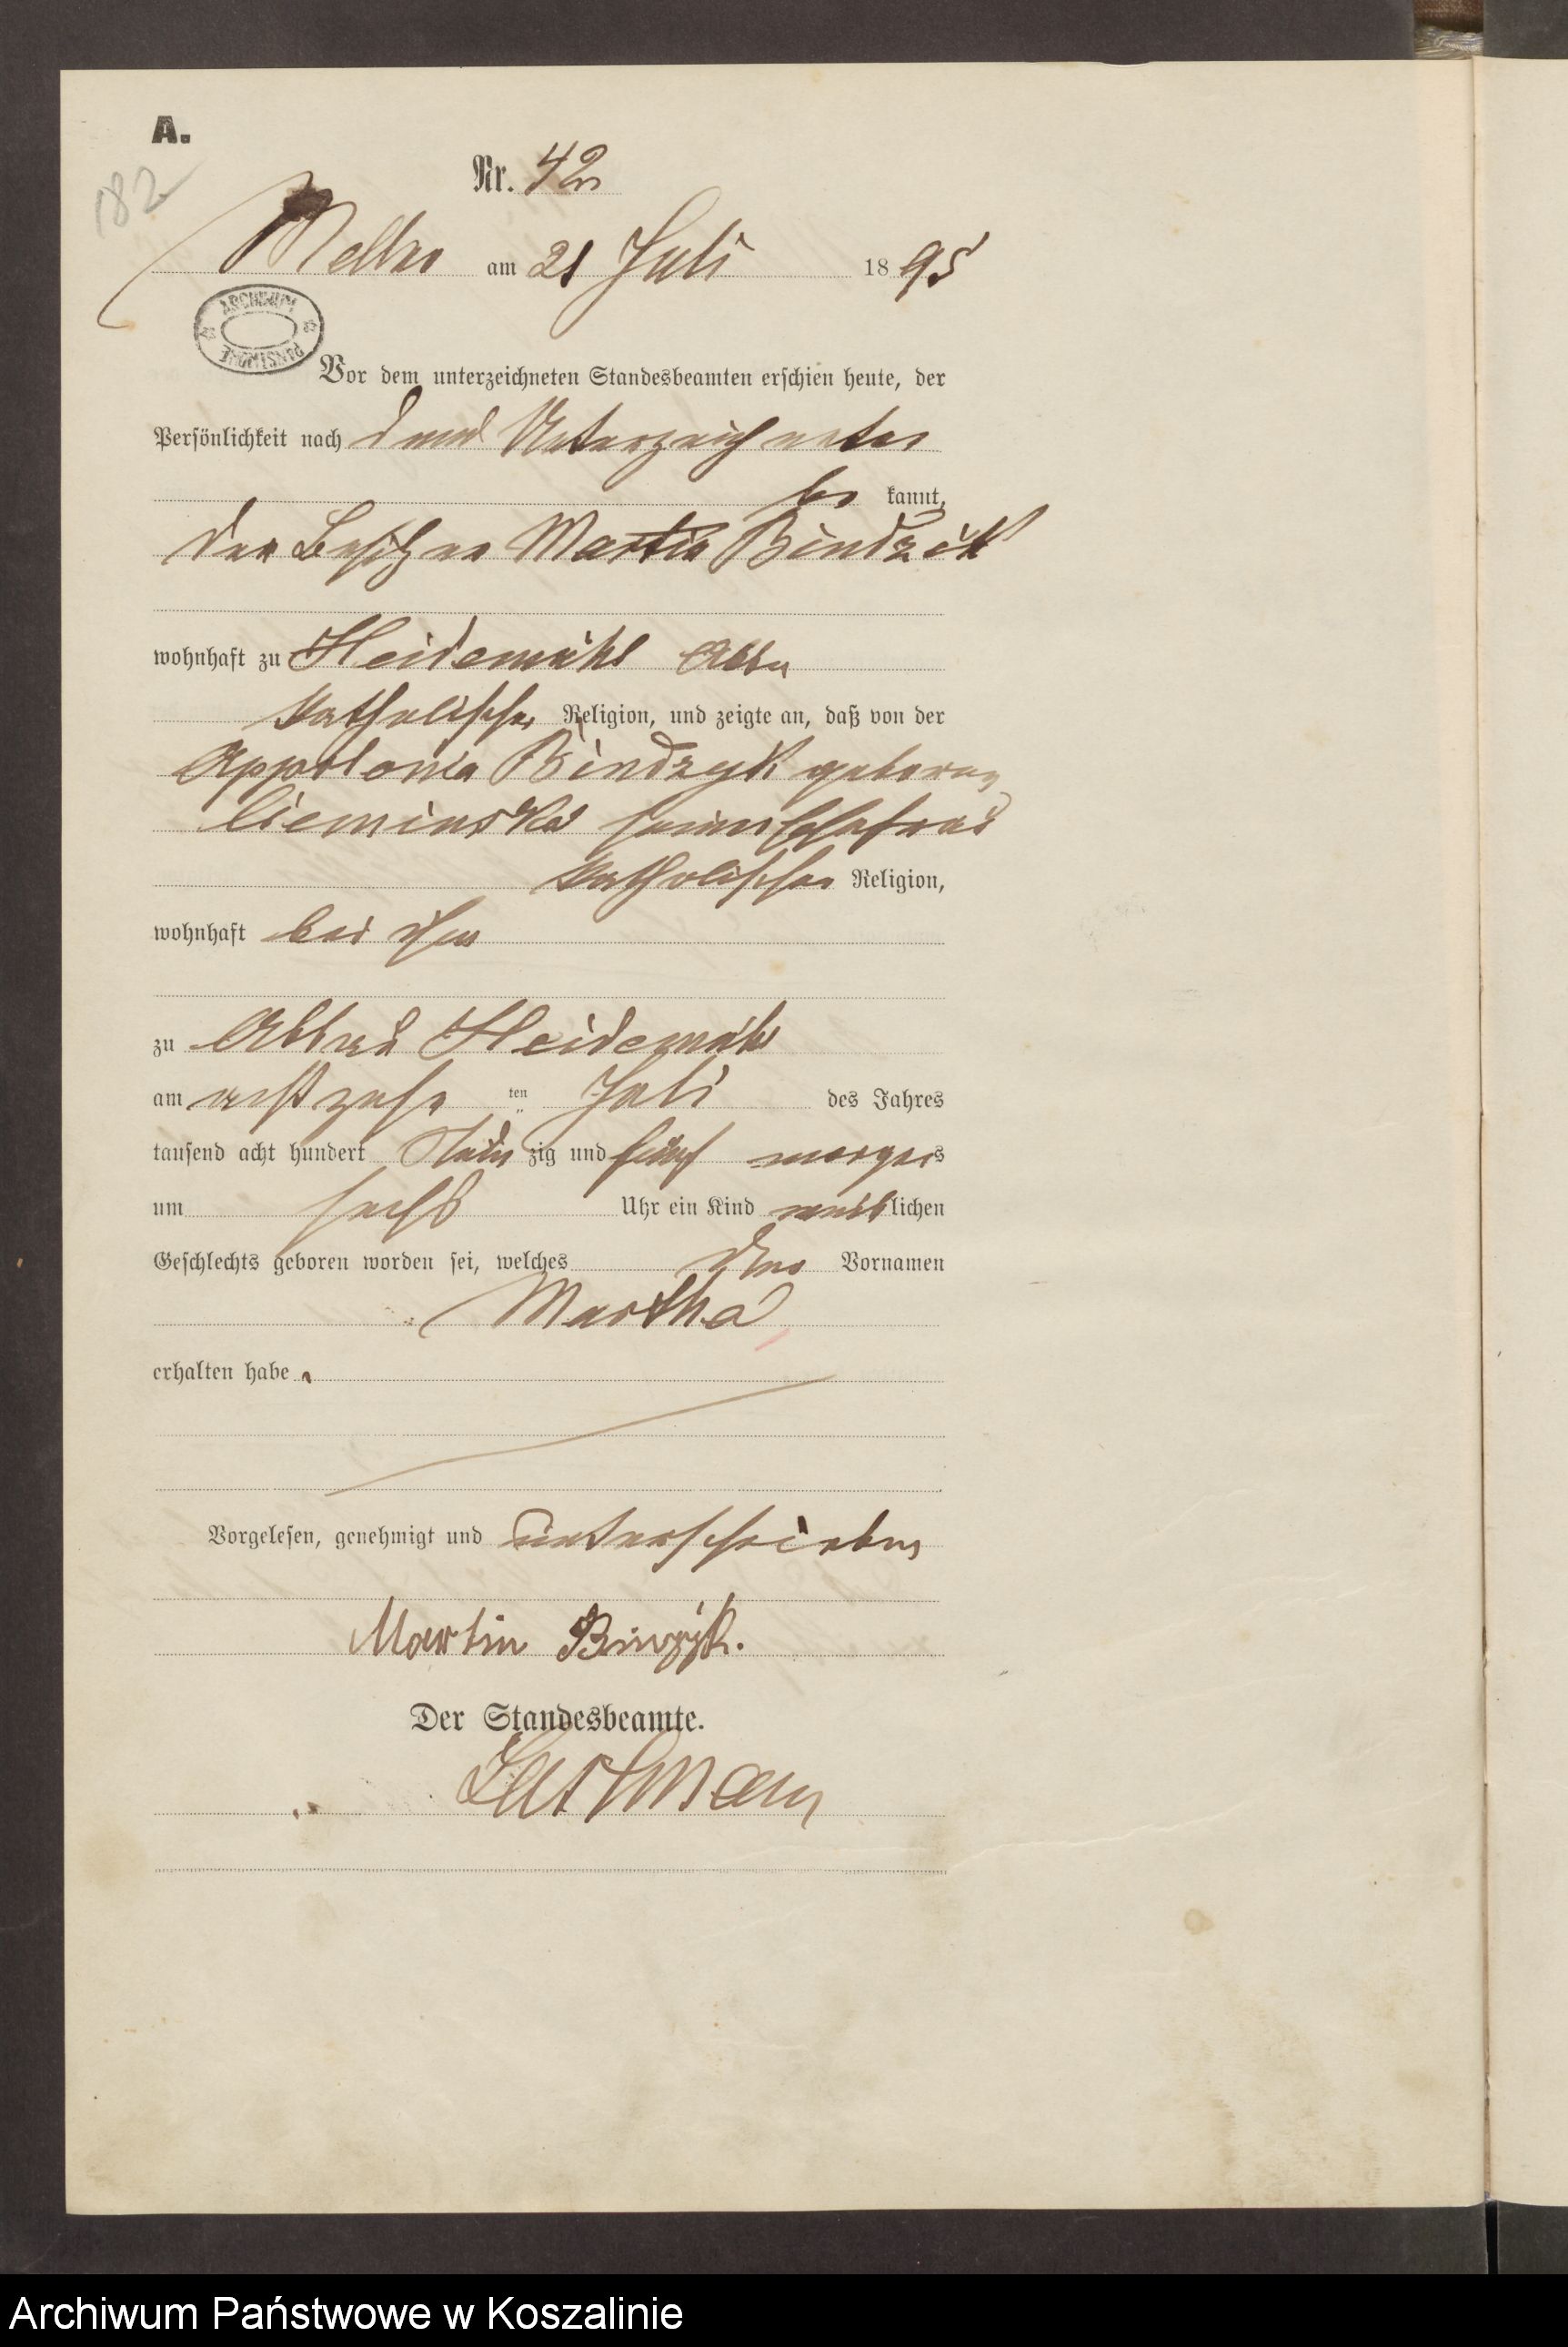 A.
182
Nr. 42
Mellno am 21 Juli 1895
ARCHIWUM PAŃSTWOWE
Vor dem unterzeichneten Standesbeamten erschien heute, der
Persönlichkeit nach dem Unterzeichneten
be kannt,
der Besitzer Martin Bindzik
wohnhaft zu Heidemühl Abbau
katholischer Religion, und zeigte an, daß von der
Appolonia Bindzyk geboren
Cieminska seiner Ehefrau
katholischer Religion,
wohnhaft bei ihm
zu Abbau Heidemühl
am achtzehn ten Juli des Jahres
tausend acht hundert Neun zig und fünf morgens
um sechs Uhr ein Kind weiblichen
Geschlechts geboren worden sei, welches den Vornamen
Martha
erhalten habe.
Vorgelesen, genehmigt und unterschrieben
Martin Binzyk.
Der Standesbeamte.
Archiwum Państwowe w Koszalinie